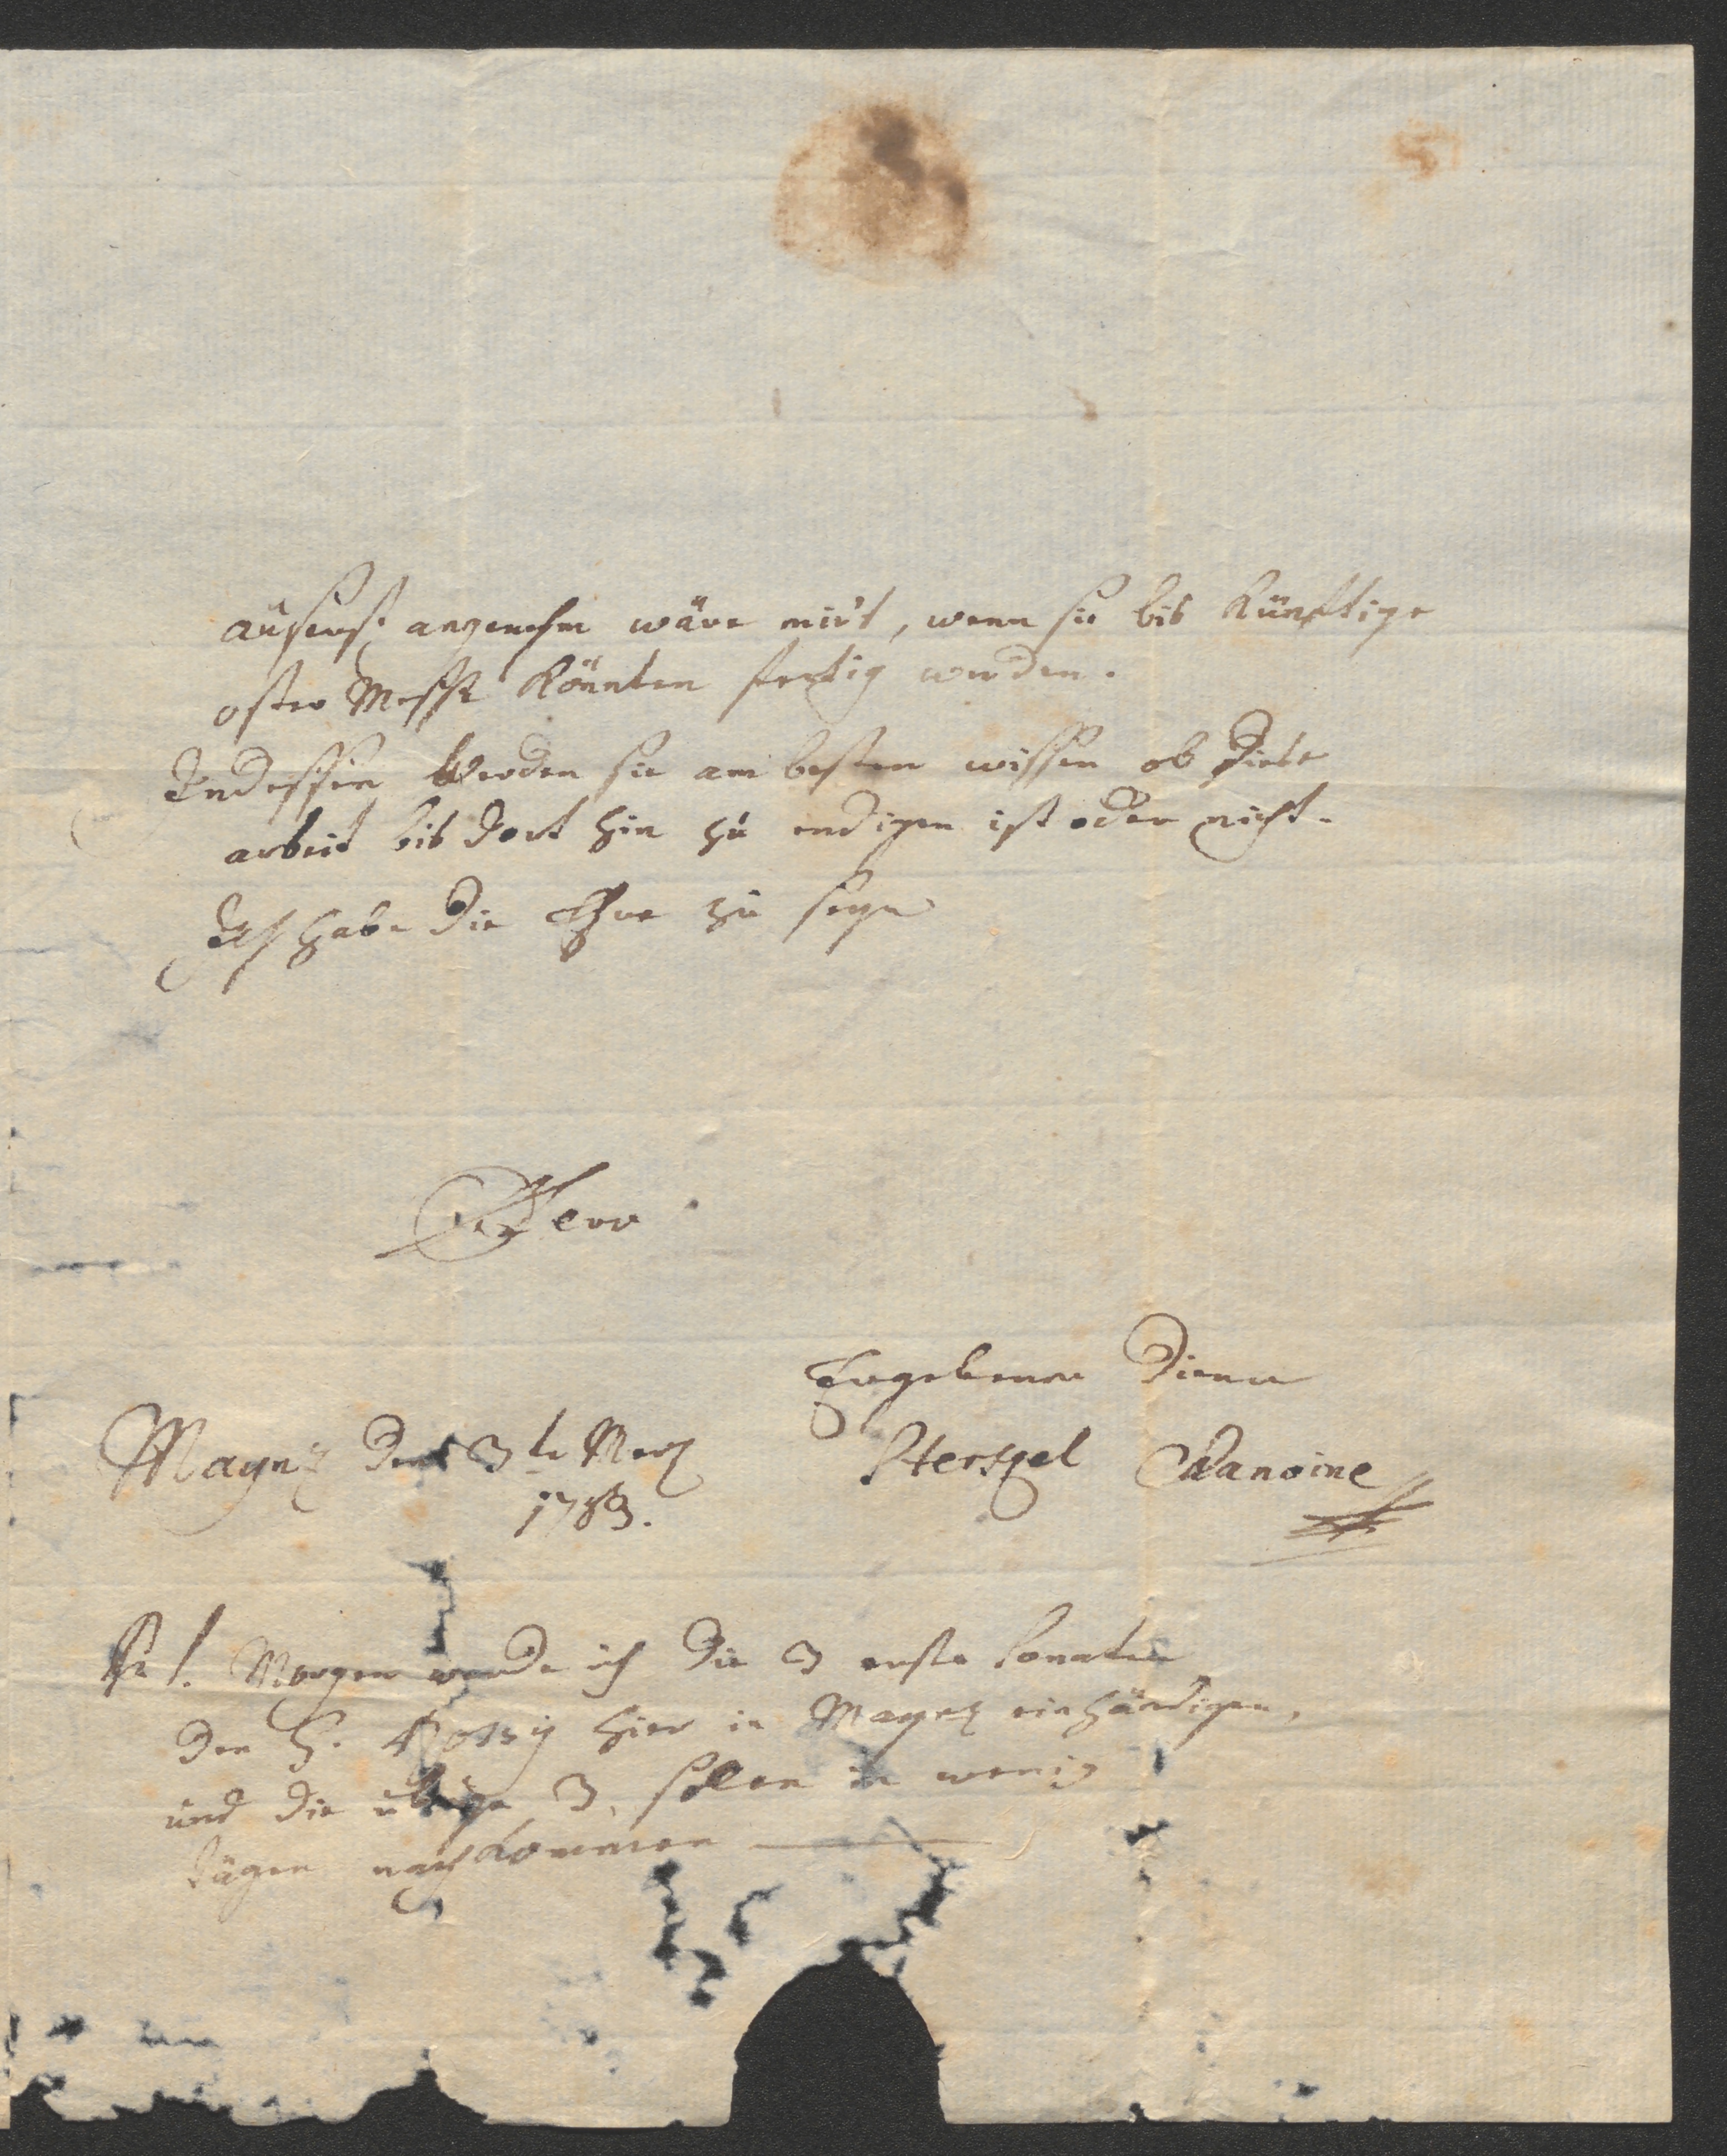 äuserst angenehm wäre mir's, wenn sie bis künftige
oster Messe könnten fertig werden.
Indessen Werden sie am besten wissen ob diese
arbeit bis dort hin zu endigen ist oder nicht.
Ich habe die Ehre zu seyn
Dero
Ergebener Diener
Maynz den 3te Merz
1783.
Morgen werde ich die 3 erste Sonaten
den H. hier in Maynz einhändigen,
und die übrige 3. sollen in wenig
tägen nachkommen